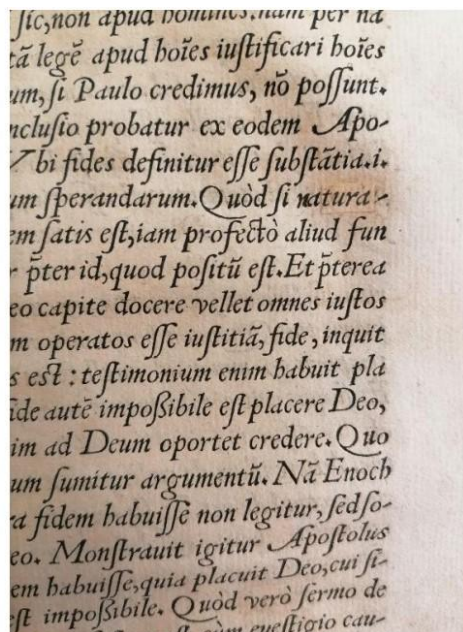 sic, non apud homines. nam per na
tã legẽ apud hoĩes iuſtificari hoĩes
um, ſi Paulo credimus, nõ poſſunt.
ncluſio probatur ex eodem Apo-
Vbi fides definitur eſſe ſubſtãtia.i.
um ſperandarum. Quòd ſi natura-
em ſatis eſt, iam profectò aliud fun
r p̃ter id, quod poſitũ eſt. Et p̃terea
eo capite docere vellet omnes iuſtos
m operatos eſſe iuſtitiã, fide, inquit
s eſt : teſtimonium enim habuit pla
ide autẽ impoßibile eſt placere Deo,
im ad Deum oportet credere. Quo
um ſumitur argumentũ. Nã Enoch
ra fidem habuiſſe non legitur, ſed ſo-
eo. Monſtrauit igitur Apoſtolus
em habuiſſe, quia placuit Deo, cui ſi-
eſt impoßibile. Quòd verò ſermo de
cùm eueſtigio cau-